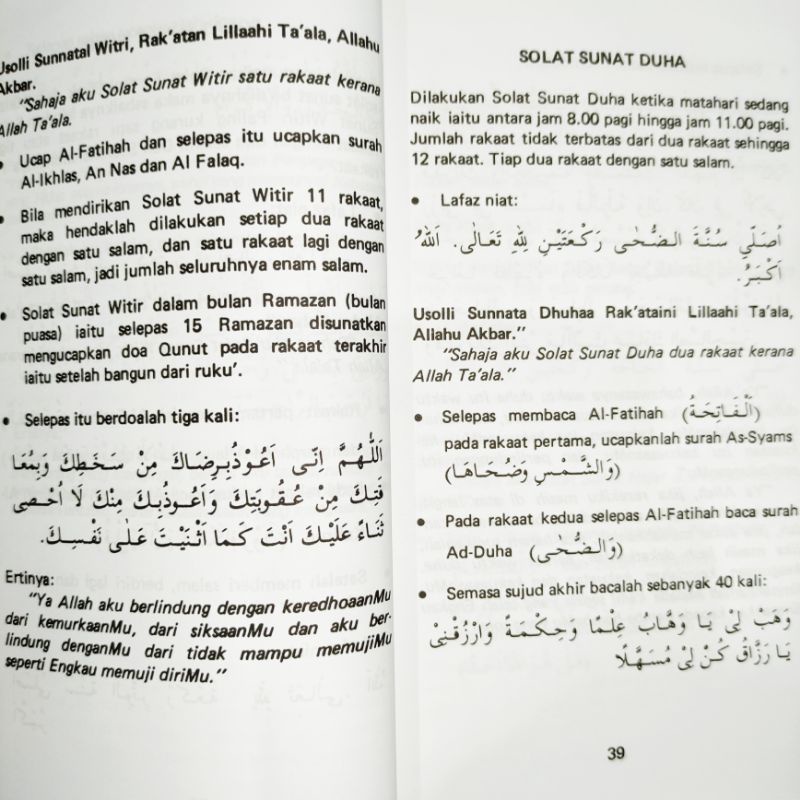 Usolli Sunnatal Witri, Rak'atan Lillaahi Ta'ala, Allahu
Akbar.
"Sahaja aku Solat Sunat Witir satu rakaat kerana
Allah Ta'ala.
• Ucap Al-Fatihah dan selepas itu ucapkan surah
Al-Ikhlas, An Nas dan Al Falaq.
• Bila mendirikan Solat Sunat Witir 11 rakaat,
maka hendaklah dilakukan setiap dua rakaat
dengan satu salam, dan satu rakaat lagi dengan
satu salam, jadi jumlah seluruhnya enam salam.
• Solat Sunat Witir dalam bulan Ramazan (bulan
puasa) iaitu selepas 15 Ramazan disunatkan
mengucapkan doa Qunut pada rakaat terakhir
iaitu setelah bangun dari ruku'.
• Selepas itu berdoalah tiga kali:
اَللّٰهُمَّ اِنِّى اَعُوْذُبِرِضَاكَ مِنْ سَخَطِكَ وَبِمُعَا
فَتِكَ مِنْ عُقُوْبَتِكَ وَاَعُوْذُبِكَ مِنْكَ لَا اُحْصِى
ثَنَاءً عَلَيْكَ اَنْتَ كَمَا اَثْنَيْتَ عَلٰى نَفْسِكَ.
Ertinya:
"Ya Allah aku berlindung dengan keredhoaanMu
dari kemurkaanMu, dari siksaanMu dan aku ber-
lindung denganMu dari tidak mampu memujiMu
seperti Engkau memuji diriMu."
SOLAT SUNAT DUHA
Dilakukan Solat Sunat Duha ketika matahari sedang
naik iaitu antara jam 8.00 pagi hingga jam 11.00 pagi.
Jumlah rakaat tidak terbatas dari dua rakaat sehingga
12 rakaat. Tiap dua rakaat dengan satu salam.
• Lafaz niat:
اُصَلِّي سُنَّةَ الضُّحٰى رَكْعَتَيْنِ لِلّٰهِ تَعَالٰى. اَللهُ
اَكْبَرُ.
Usolli Sunnata Dhuhaa Rak'ataini Lillaahi Ta'ala,
Allahu Akbar."
"Sahaja aku Solat Sunat Duha dua rakaat kerana
Allah Ta'ala."
• Selepas membaca Al-Fatihah (اَلْفَاتِحَةُ)
pada rakaat pertama, ucapkanlah surah As-Syams
(وَالشَّمْسِ وَضُحَاهَا)
• Pada rakaat kedua selepas Al-Fatihah baca surah
Ad-Duha (وَالضُّحٰى)
• Semasa sujud akhir bacalah sebanyak 40 kali:
وَهَبْ لِىْ يَا وَهَّابُ عِلْمًا وَحِكْمَةً وَارْزُقْنِىْ
يَا رَزَّاقُ كُنْ لِىْ مُسَهِّلًا
39